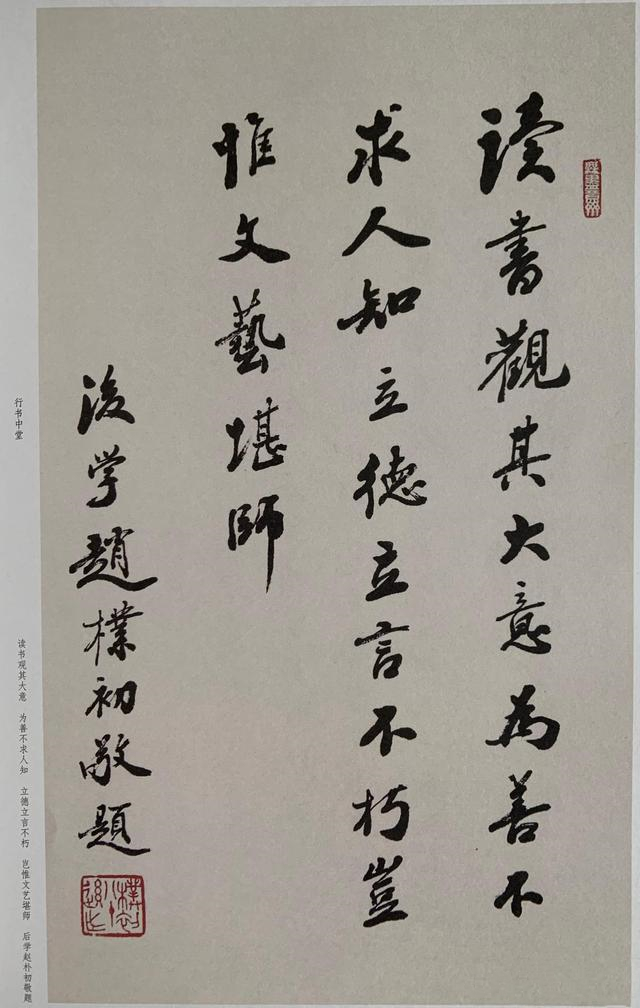 读书觀其大意為善不
求人知立德立言不朽豈
惟文藝堪師
後学趙樸初敬題
行书中堂
读书观其大意 为善不求人知 立德立言不朽 岂惟文艺堪师 后学赵朴初敬题